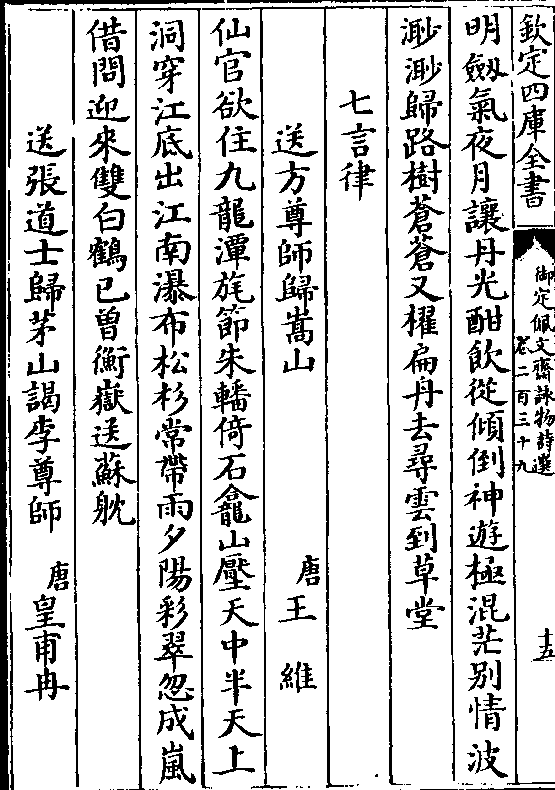 欽定四庫全書
御定佩文齋詠物詩選
卷二百三十九
十五
明劔氣夜月讓丹光酣飲從傾倒神遊極混茫别情波
渺渺歸路樹蒼蒼又櫂扁舟去尋雲到草堂
七言律
送方尊師歸嵩山
唐王維
仙官欲住九龍潭旄節朱轓倚石龕山壓天中半天上
洞穿江底出江南瀑布松杉常帶雨夕陽彩翠忽成嵐
借問迎來雙白鶴已曾衡嶽送蘇躭
送張道士歸茅山謁李尊師
唐皇甫冉